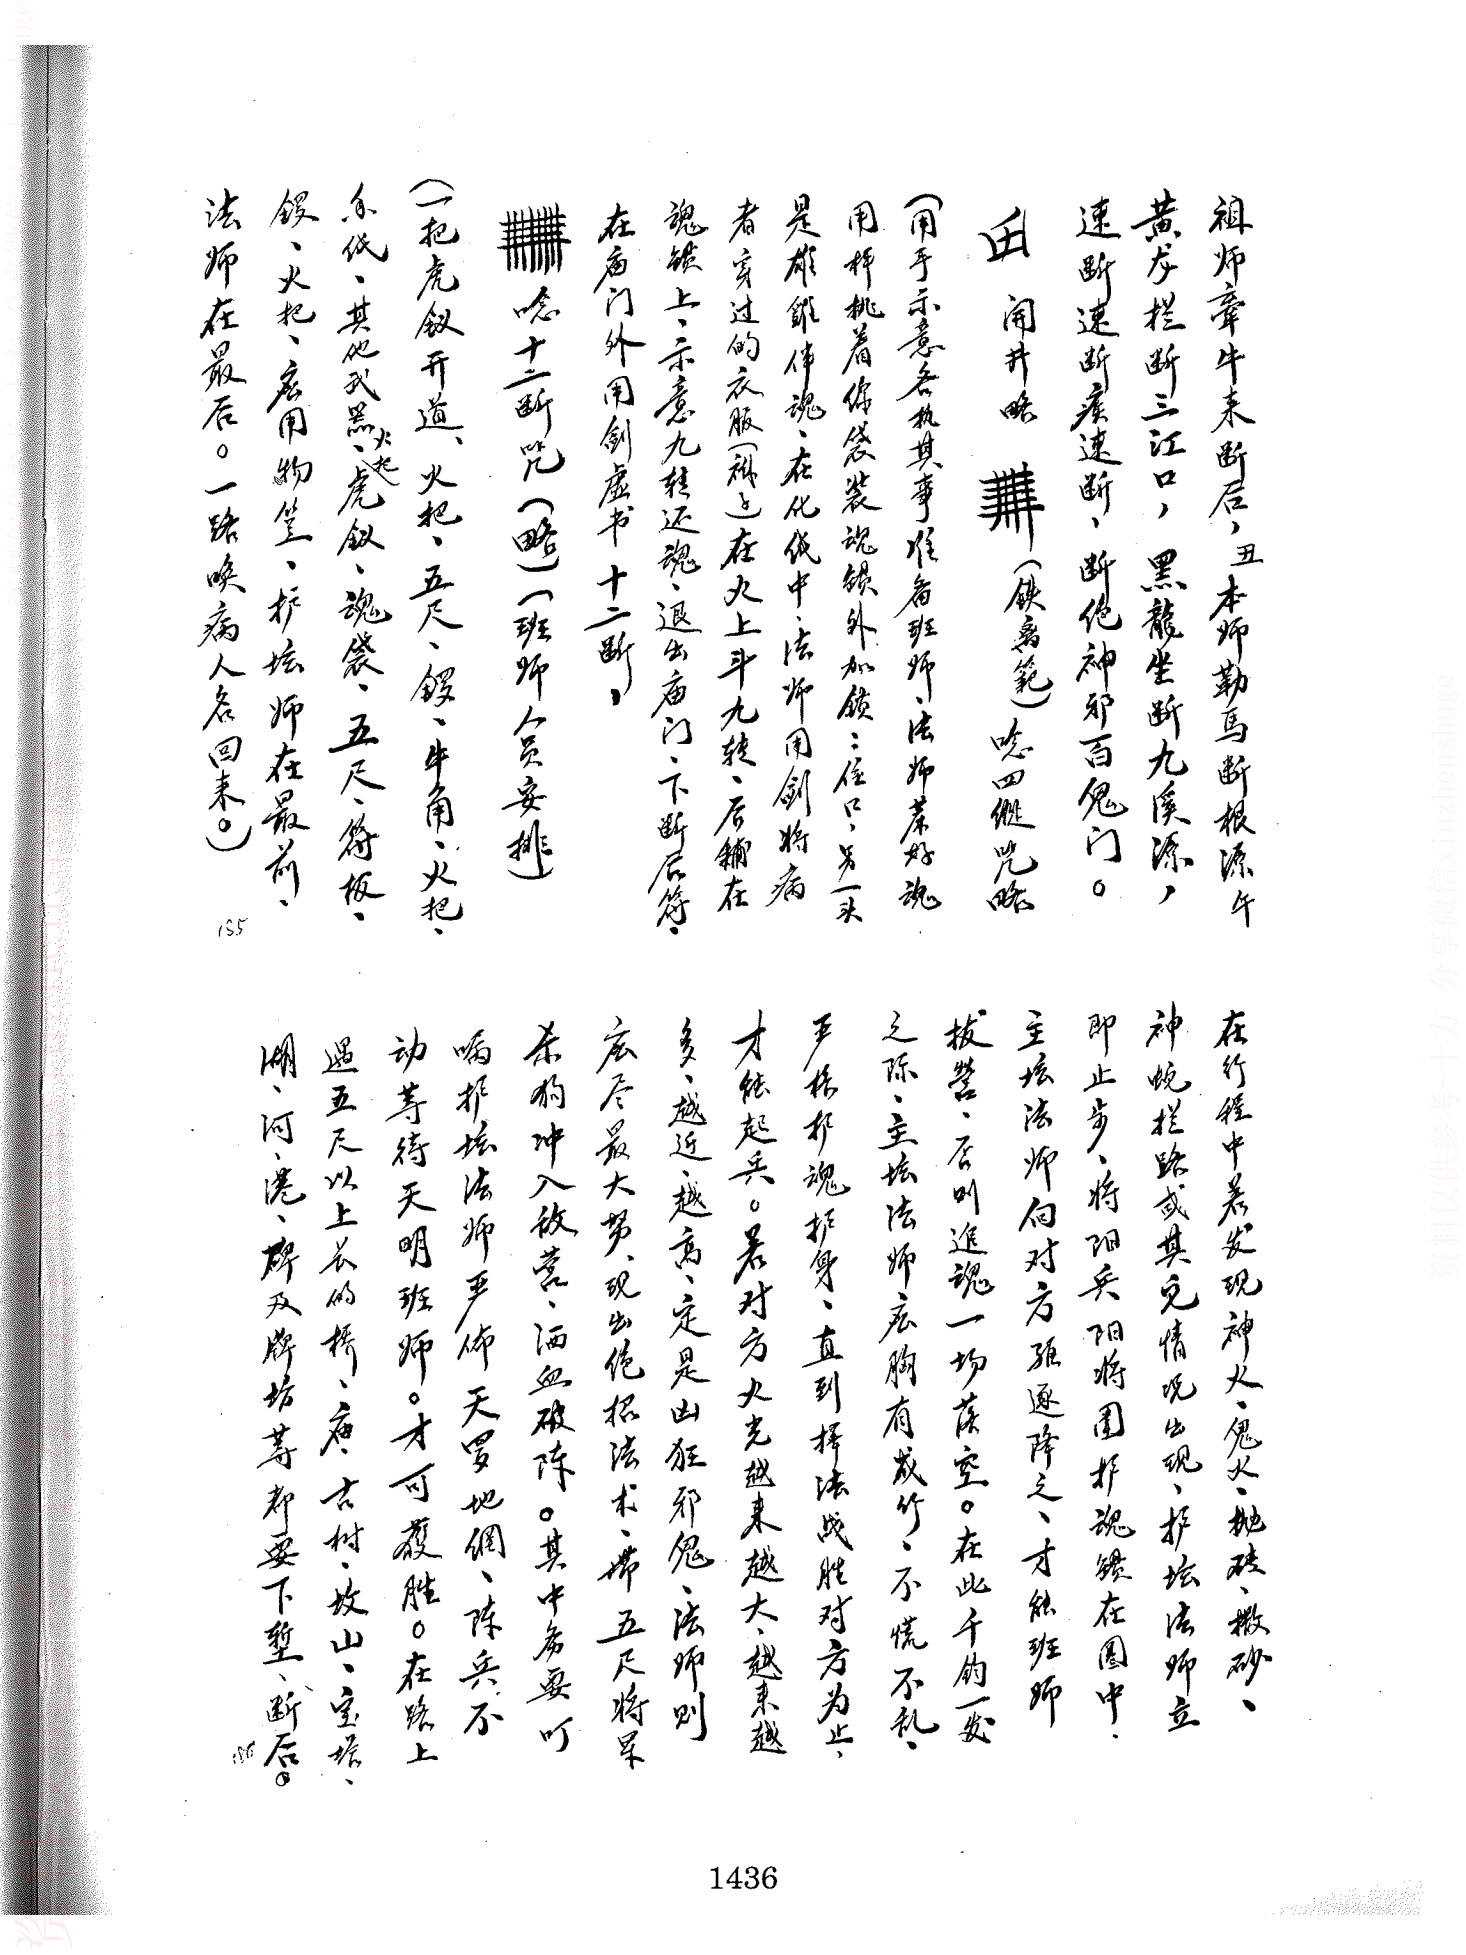 祖师牵牛来断后，丑本师勒马断根源午
黄龙拦断三江口，黑龍坐断九溪源，
速断速断疾速断、断绝神邪百鬼门。
开井略 （铁离範）唸四纵咒略
（用手示意各执其事准备班师、法师荼好魂
用枰挑着你袋装魂锁外加锁：住口、另一头
是雄雞伴魂、在化纸中、法师用剑将病
者穿过的衣服（褂之）在火上斗九转、后铺在
魂锁上、示意九转还魂、退出庙门、下断后符、
在庙门外用剑虚书十二断，
唸十二断咒（略）（班师人员安排）
（一把虎釵开道、火把、五尺、鑼、牛角、火把、
香纸、其他武器、火把虎釵、魂袋、五尺、符板、
鑼、火把、应用物笠、护坛师在最前、
法师在最后。一路唤病人名回来。）
155
在行程中若发现神火、鬼火、抛砖、撒砂、
神蛇拦路或其它情况出现、护坛法师立
即止步、将阳兵阳将围护魂锁在圆中.
主坛法师向对方强逐降之、才能班师
拔營、否则追魂一场落空。在此千钧一发
之际、主坛法师应胸有成竹、不慌不乱、
严格护魂护身、直到择法战胜对方为止、
才能起兵。若对方火光越来越大、越来越
多、越近、越高、定是凶狂邪鬼、法师则
应尽最大努、现出绝招法术、带五尺将呆
杀狗冲入敌营、洒血破陈。其中务要叮
嘱护坛法师严佈天罗地網、陈兵不
动等待天明班师。才可獲胜。在路上
遇五尺以上长的桥、庙、古树、坟山、宝塔、
湖、河、港、碑及牌坊等都要下塹、断后。
156
1436